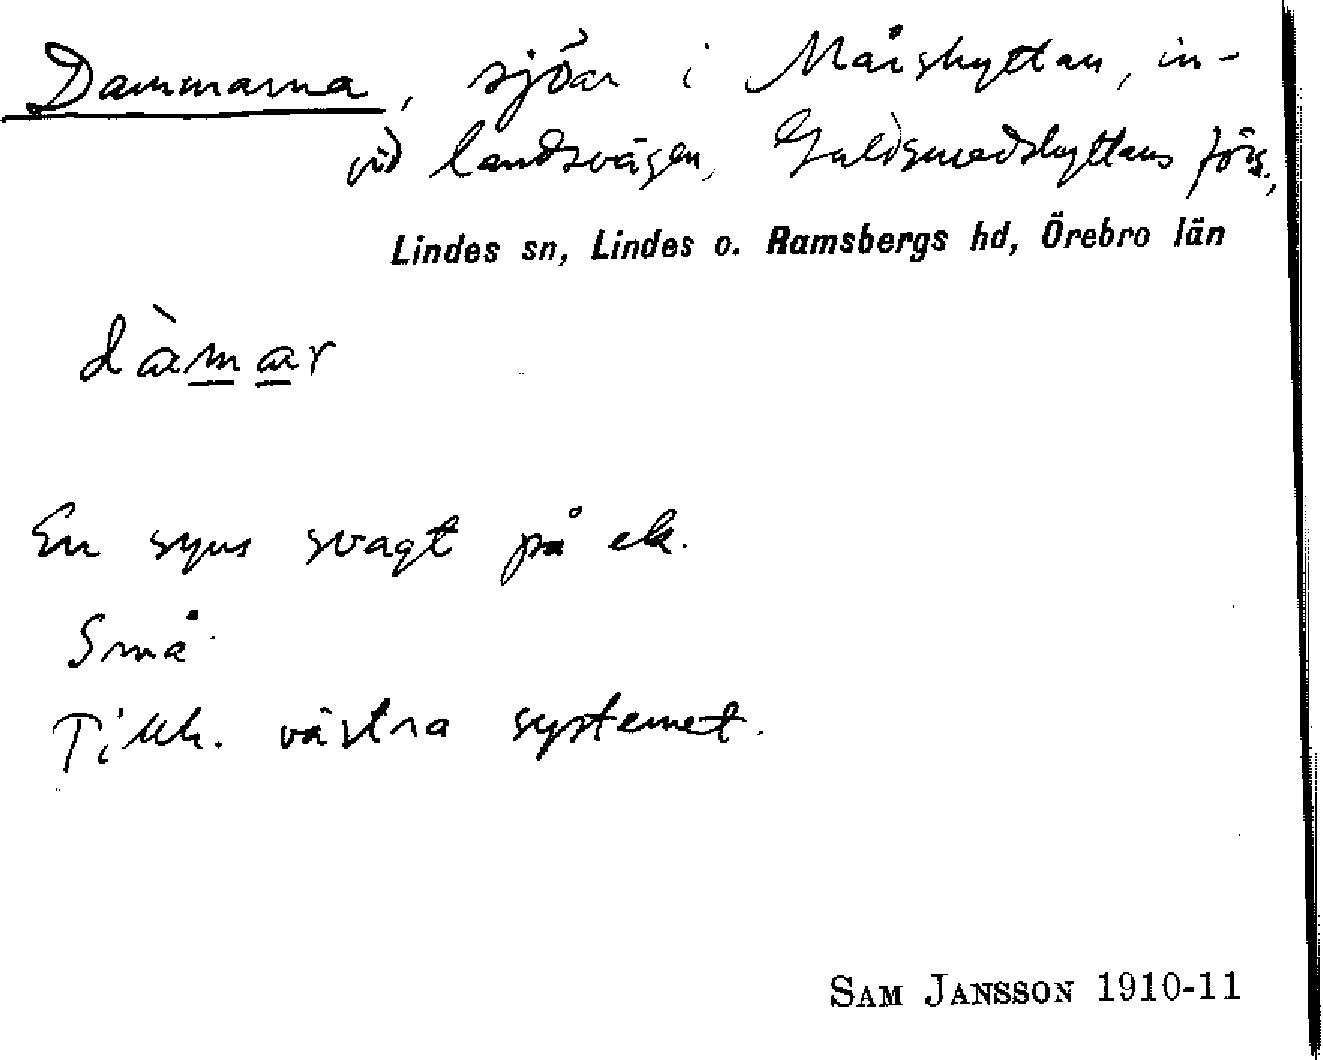 Dammarna, sjöar i Mårshyttan, in-
vid landsvägen, Guldsmedshyttans förs.,
Lindes sn, Lindes o. Ramsbergs hd, Örebro län
dàmar
En syns svagt på ek.
Små
Tillh. västra systemet.
SAM JANSSON 1910-11